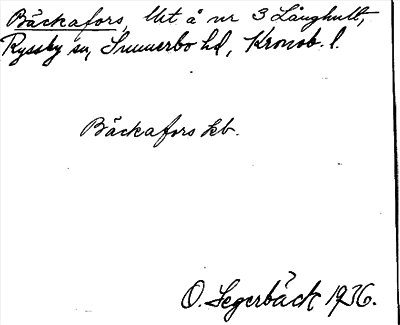 Bäckafors, Ut å nr 3 Långhult,
Ryssby sn, Sunnerbo hd, Kronob. l.
Bäckafors hb.
O. Segerbäck 1936.